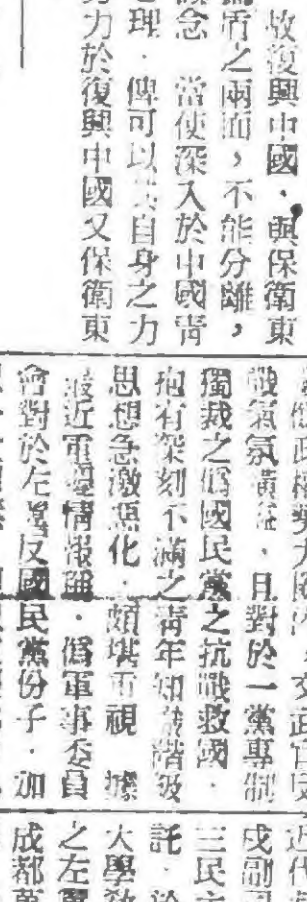 故復興中國、與保衛東
盾之兩面，不能分離，
念 當使深入於中國青
理．俾可以其自身之力
力於復興中國又保衛東
戰氣氛 ．且對於一黨專制
獨裁之僞國民黨之抗戰救國．
抱有深刻不滿之青年知識階級
思想急激惡化．頗堪重視 據
最近軍 情報稱．僞軍事委員
會對於左翼反國民黨份子．加
近代
戌副司
三民主
託．於
大學教
之左翼
成都